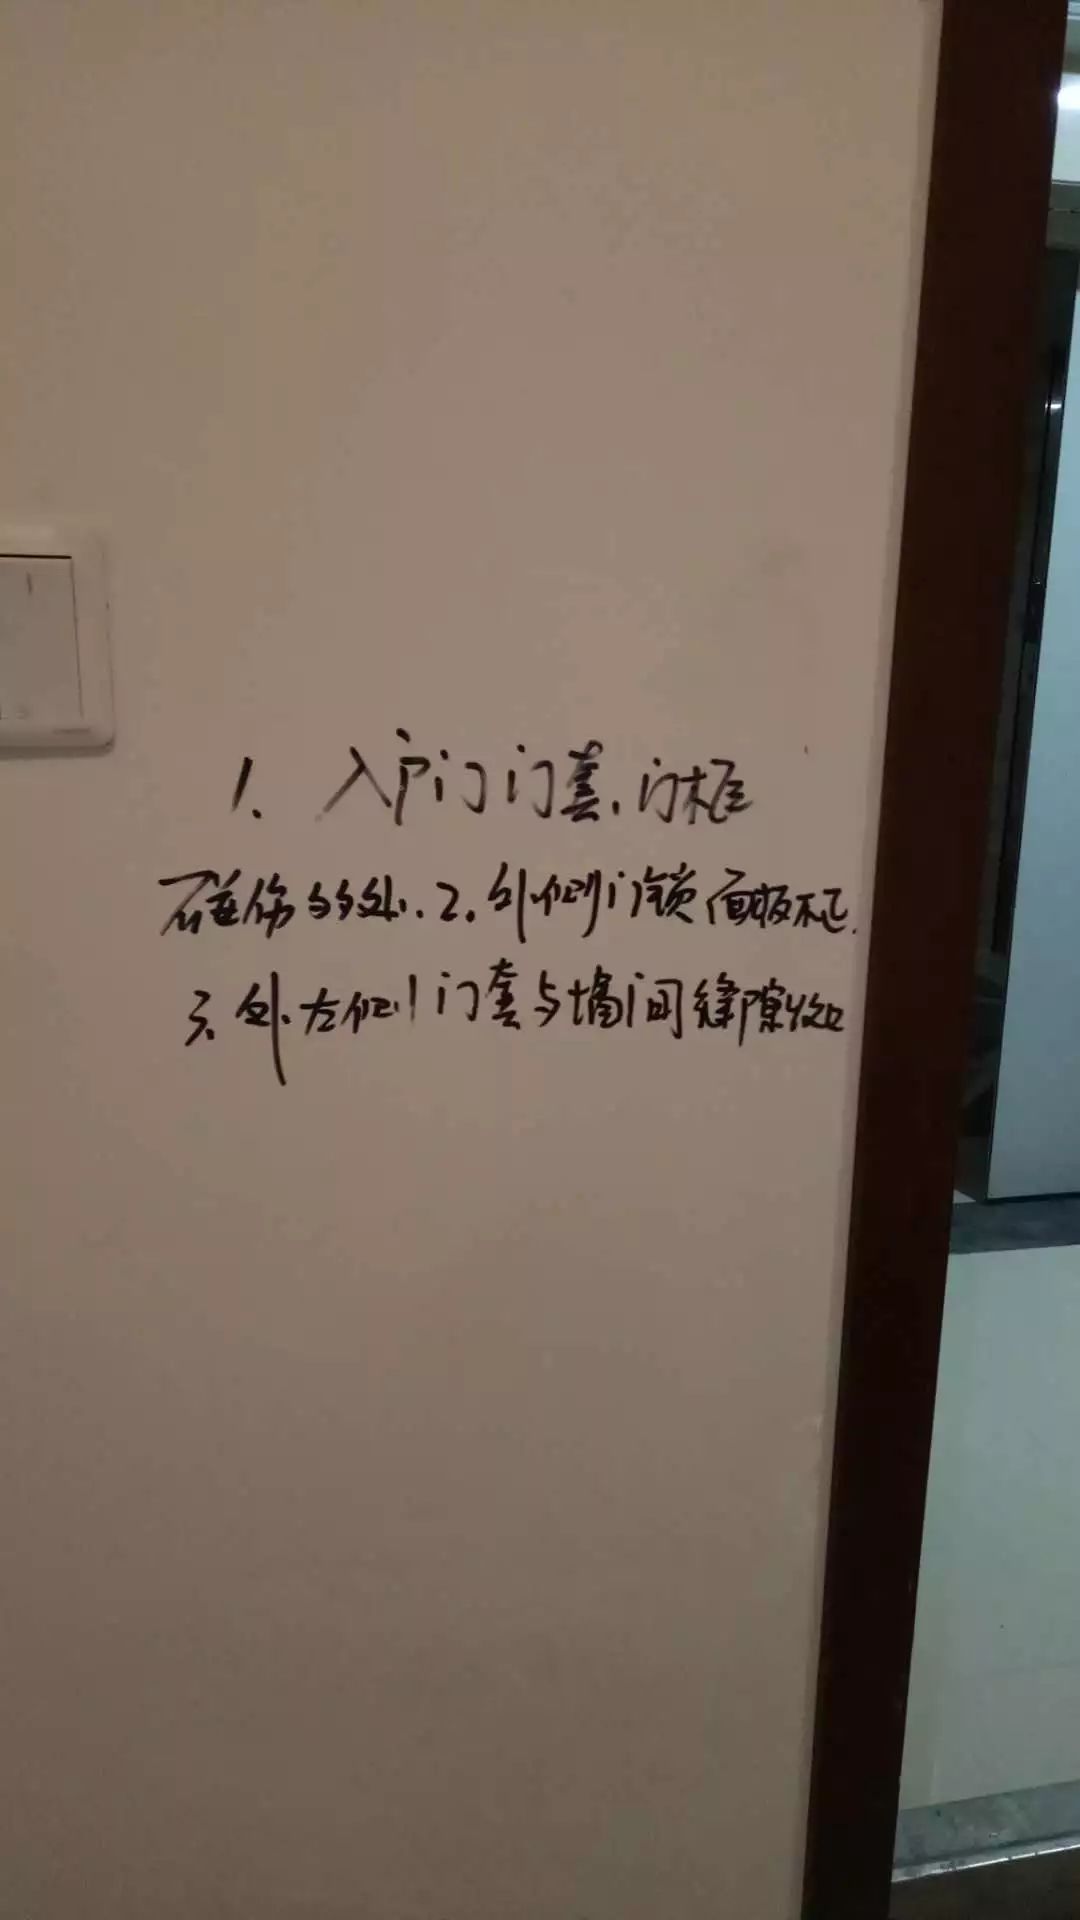 1. 入户门门套、门框
碰伤多处、2. 外侧门锁面板不正.
3. 外左侧门套与墙间缝隙收口